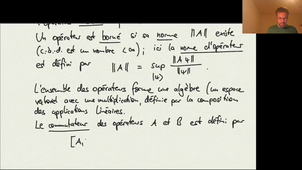 Un opérateur est borné si sa norme ||A|| existe
(c.à.d. est un nombre < ∞) ; ici la norme d'opérateur
est définie par ||A|| = sup ||Aψ|| / ||ψ|| .
|ψ⟩
L'ensemble des opérateurs forme une algèbre (un espace
vectoriel avec une multiplication, définie par la composition
des applications linéaires.
Le commutateur des opérateurs A et B est défini par
[A,